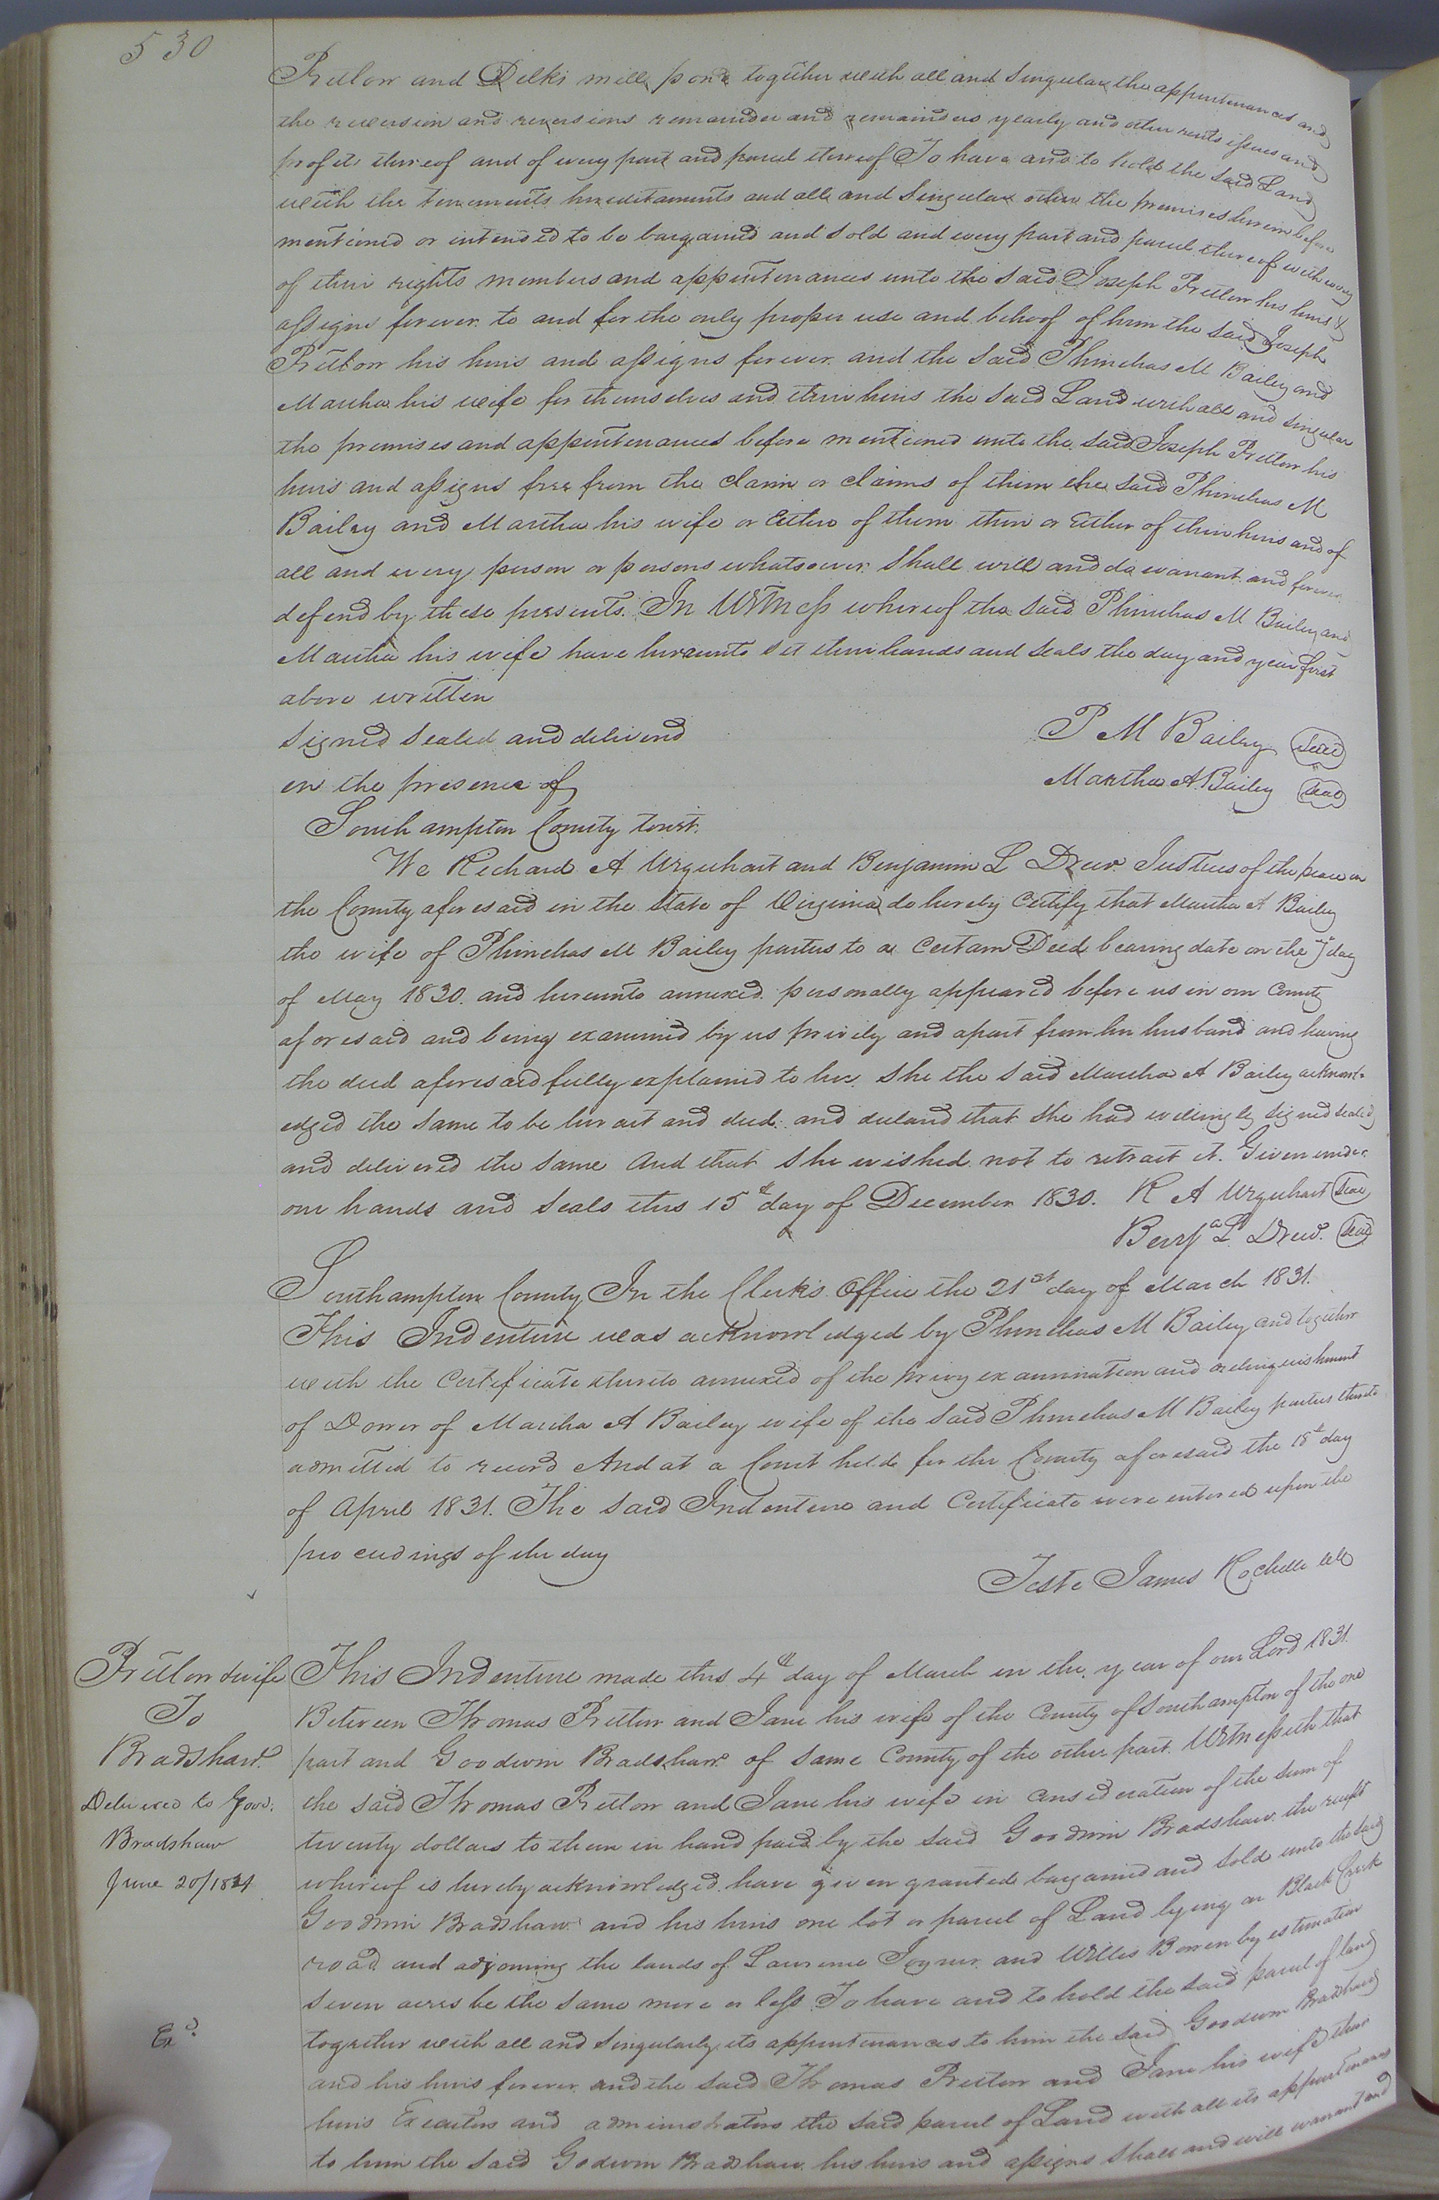 530
Pretlow and Delks mill pond together with all and Singular the appurtenances and
the reversion and reversions remainder and remainders yearly and other rents issues and
profits thereof and of every part and parcel thereof To have and to hold the said Land
with the tenements hereditaments and all and Singular other the premises herein before
mentioned or intended to be bargained and sold and every part and parcel thereof with every
of their rights members and appurtenances unto the said Joseph Pretlow his heirs &
assigns forever to and for the only proper use and behoof of him the said Joseph
Pretlow his heirs and assigns forever. and the said Phinehas M Bailey and
Martha his wife for themselves and their heirs the said Land with all and singular
the premises and appurtenances before mentioned unto the said Joseph Pretlow his
heirs and assigns free from the claim or claims of them the said Phinehas M
Bailey and Martha his wife or Either of them their or Either of their heirs and of
all and every person or persons whatsoever Shall will and do warrant and forever
defend by these presents. In Witness whereof the said Phinehas M Bailey and
Martha his wife have hereunto set their hands and seals the day and year first
above written
Signed Sealed and deliverd
in the presence of
P M Bailey Seal
Martha A. Bailey Seal
Southampton County towit.
We Richard A Urquhart and Benjamin L Drew Justices of the peace in
the County aforesaid in the State of Virginia do hereby Certify that Martha A Bailey
the wife of Phinehas M Bailey parties to a Certain Deed bearing date on the 7th day
of May 1830. and hereunto annexed. personally appeared before us in our County
aforesaid and being examined by us privily and apart from her husband and having
the deed aforesaid fully explained to her. She the said Martha A Bailey acknowl-
edged the same to be her act and deed. and declared that She had willingly signed sealed
and delivered the same And that She wished not to retract it. Given under
our hands and Seals this 15th day of December 1830. R A Urquhart Seal
Benja L Drew. Seal
Southampton County In the Clerks Office the 21st day of March 1831.
This Indenture was acknowledged by Phinehas M Bailey and together
with the Certificate thereto annexed of the privy examination and relinquishment
of Dower of Martha A Bailey wife of the said Phinehas M Bailey parties thereto
admitted to record And at a Court held for the County aforesaid the 18th day
of April 1831. The said Indenture and Certificate were entered upon the
proceedings of the day
Teste James Rochelle
Pretlow & wife
To
Bradshaw.
Delivered to Good.
Bradshaw
June 20/1831
Exd.
This Indenture made this 4th day of March in the year of our Lord 1831.
Between Thomas Pretlow and Jane his wife of the County of Southampton of the one
part and Goodwin Bradshaw of same County of the other part. Witnesseth that
the said Thomas Pretlow and Jane his wife in consideration of the sum of
twenty dollars to them in hand paid by the said Goodwin Bradshaw the receipt
whereof is hereby acknowledged. have given granted bargained and sold unto the said
Goodwin Bradshaw and his heirs one lot or parcel of Land lying on Black Creek
road and adjoining the lands of Lawrence Joyner and Willis Bowen by estimation
Seven acres be the same more or less To have and to hold the said parcel of land
together with all and Singularly its appurtenances to him the said Goodwin Bradshaw
and his heirs forever. and the said Thomas Pretlow and Jane his wife their
heirs Executors and administrators the said parcel of Land with all its appurtenances
to him the said Godwin Bradshaw his heirs and assigns Shall and will warrant and